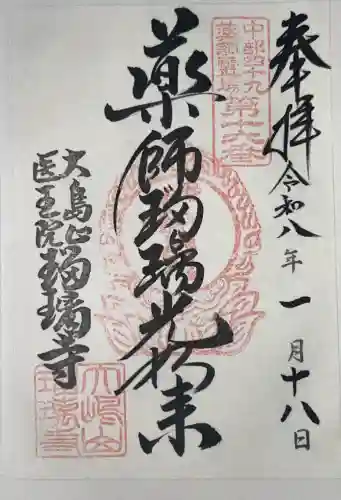 奉拝
令和八年一月十八日
中部四十九
薬師霊場
第十六番
薬師瑠璃光如来
大島山
医王院
瑠璃寺
大嶋山
瑠璃寺